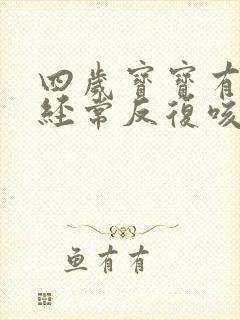 四歲寶寶有
經常反復咳
魚有有